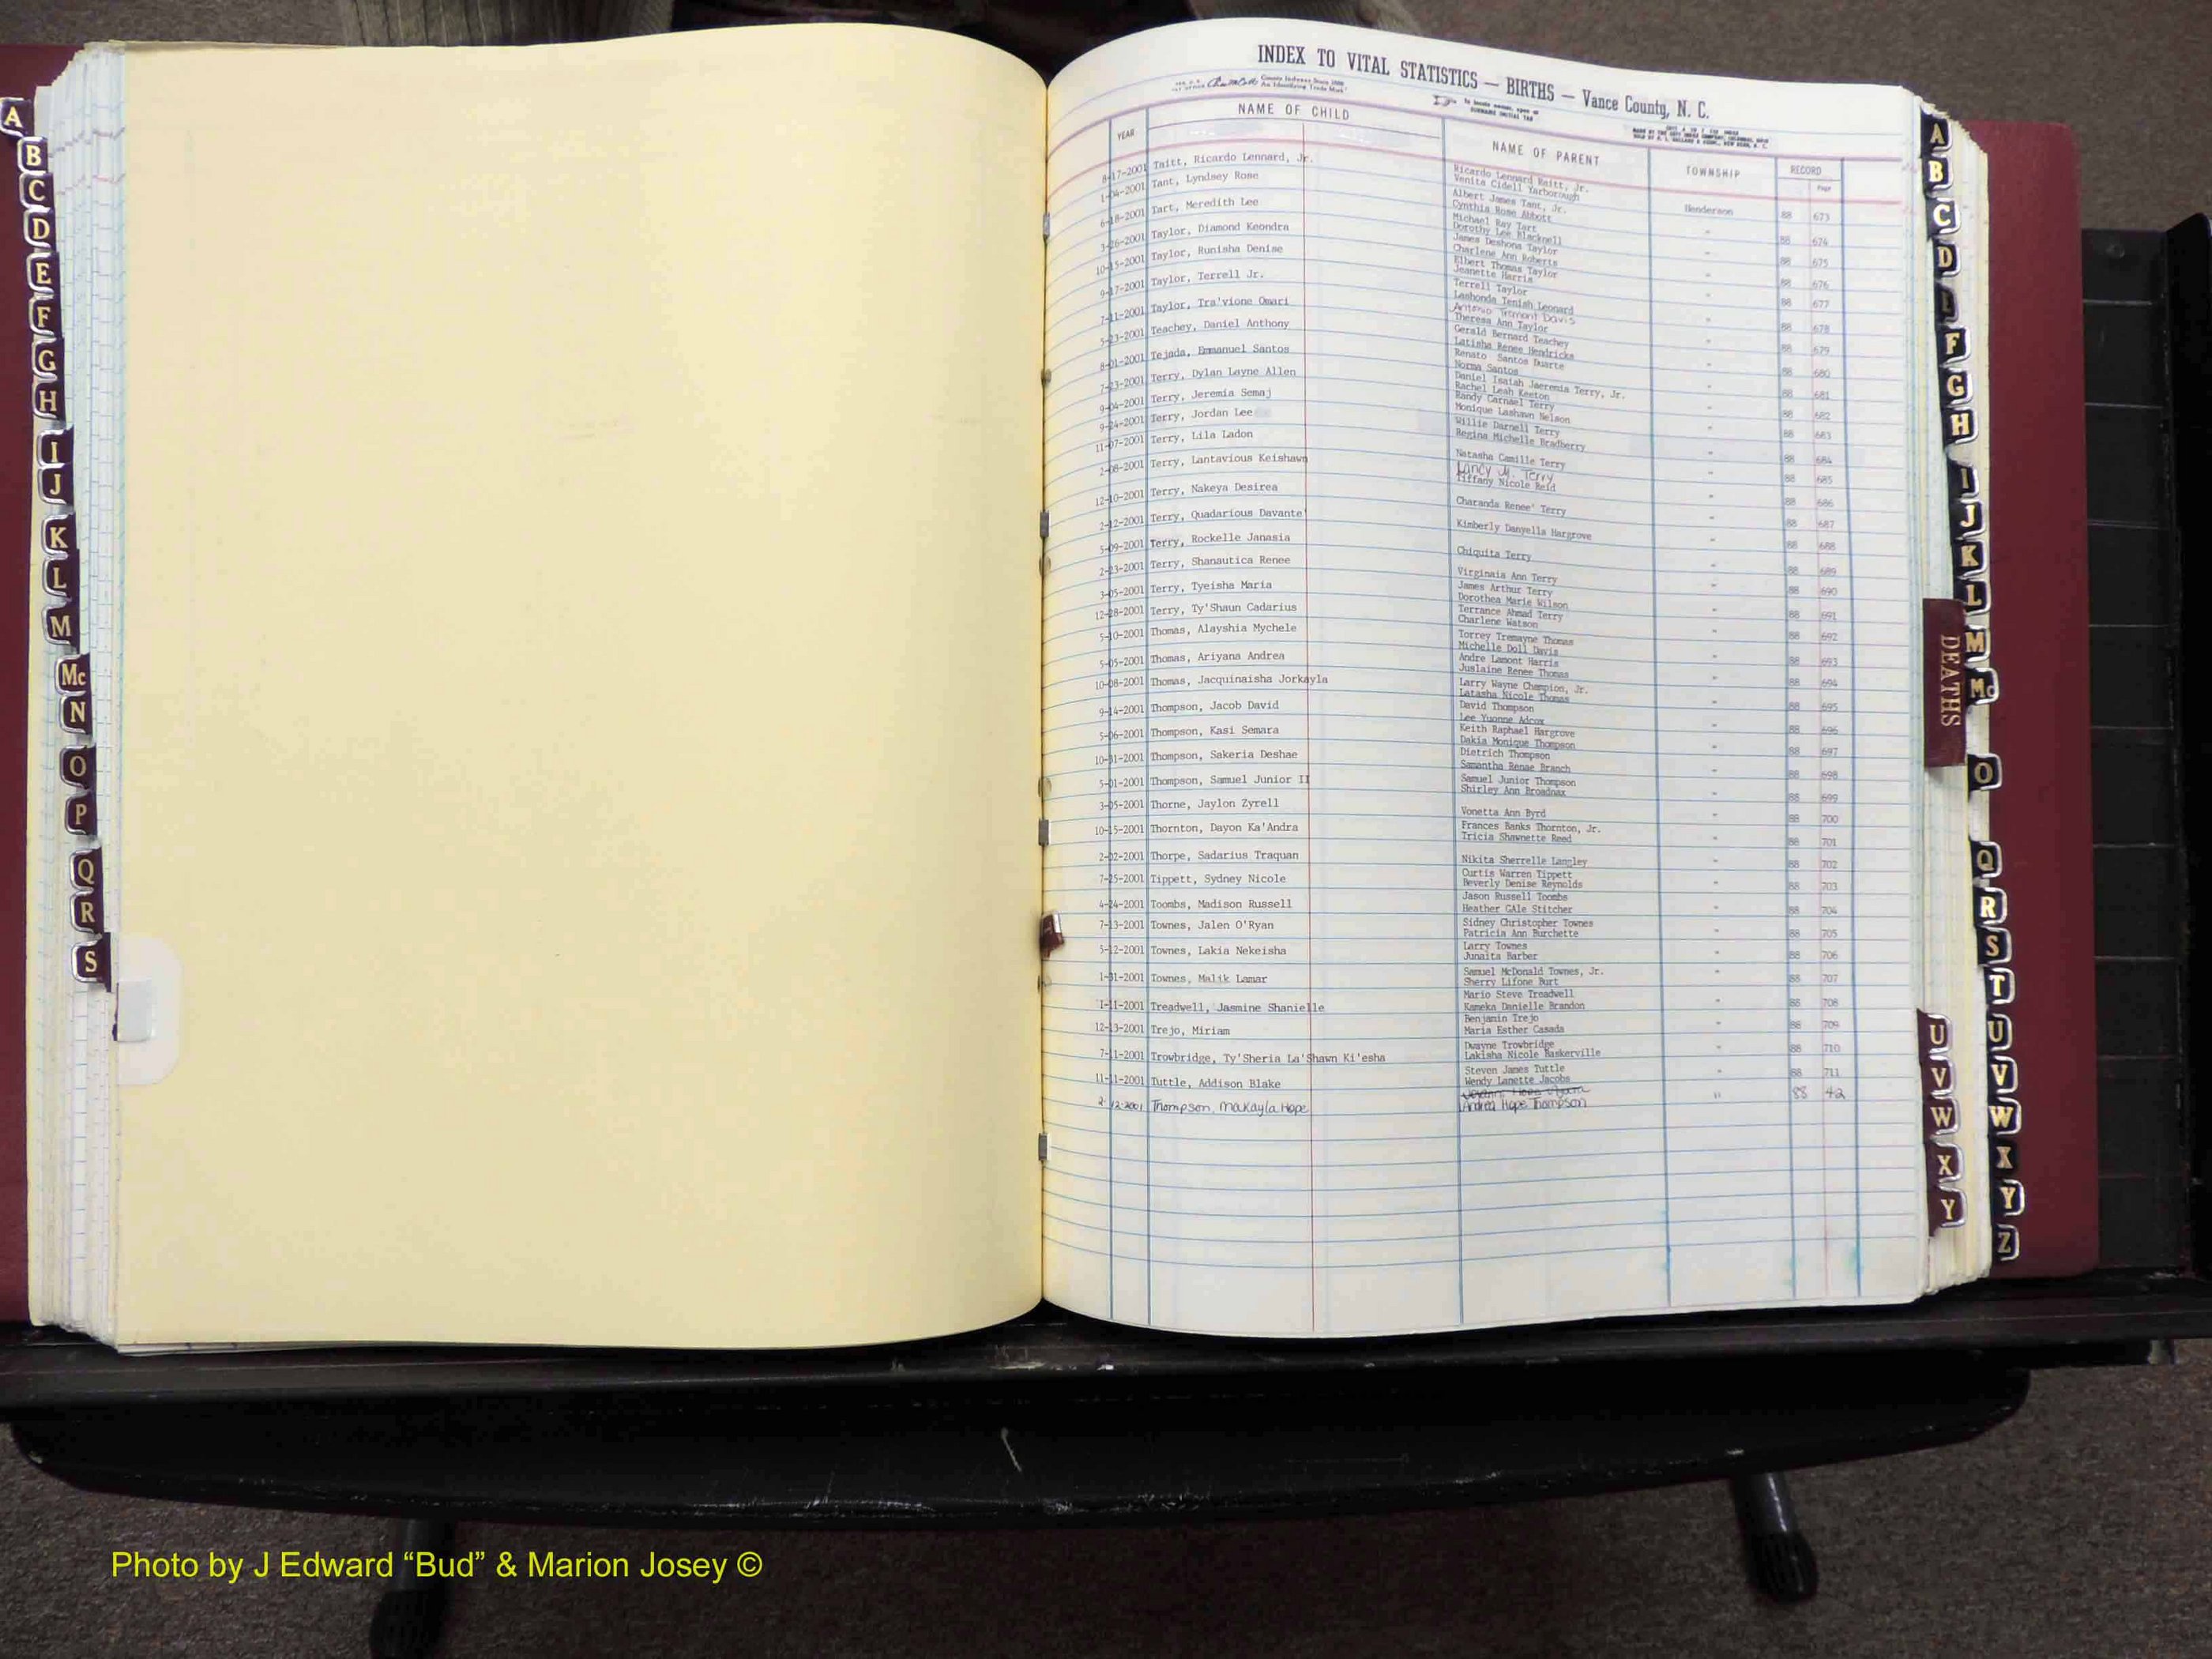 INDEX TO VITAL STATISTICS — BIRTHS — Vance County, N. C.
YEAR NAME OF CHILD NAME OF PARENT TOWNSHIP RECORD
Page
8-17-2001 Taitt, Ricardo Lennard, Jr. Ricardo Lennard Raitt, Jr. Henderson 88 673
Venita Cidell Yarborough
1-04-2001 Tant, Lyndsey Rose Albert James Tant, Jr. " 88 674
Cynthia Rose Abbott
6-18-2001 Tart, Meredith Lee Michael Ray Tart " 88 675
Dorothy Lee Blacknell
3-26-2001 Taylor, Diamond Keondra James Deshons Taylor " 88 676
Charlene Ann Roberts
10-15-2001 Taylor, Runisha Denise Elbert Thomas Taylor " 88 677
Jeanette Harris
9-17-2001 Taylor, Terrell Jr. Terrell Taylor " 88 678
Lashonda Tenish Leonard
7-11-2001 Taylor, Tra'vione Omari Antonio Tremont Davis " 88 679
Theresa Ann Taylor
5-23-2001 Teachey, Daniel Anthony Gerald Bernard Teachey " 88 680
Latisha Renee Hendricks
8-01-2001 Tejada, Emmanuel Santos Renato Santos Duarte " 88 681
Norma Santos
7-23-2001 Terry, Dylan Layne Allen Daniel Isaiah Jaeremia Terry, Jr. " 88 682
Rachel Leah Keeton
9-04-2001 Terry, Jeremia Semaj Randy Carnael Terry " 88 683
Monique Lashawn Nelson
9-24-2001 Terry, Jordan Lee Willie Darnell Terry " 88 684
Regina Michelle Bradberry
11-07-2001 Terry, Lila Ladon Natasha Camille Terry " 88 685
2-08-2001 Terry, Lantavious Keishawn Lancy M. Terry " 88 686
Tiffany Nicole Reid
12-10-2001 Terry, Nakeya Desirea Charanda Renee' Terry " 88 687
2-12-2001 Terry, Quadarious Davante' Kimberly Danyella Hargrove " 88 688
5-09-2001 Terry, Rockelle Janasia Chiquita Terry " 88 689
2-23-2001 Terry, Shanautica Renee Virginais Ann Terry " 88 690
3-05-2001 Terry, Tyeisha Maria James Arthur Terry " 88 691
Dorothea Marie Wilson
12-28-2001 Terry, Ty'Shaun Cadarius Terrance Ahmad Terry " 88 692
Charlene Watson
5-10-2001 Thomas, Alayshia Mychele Torrey Tremayne Thomas " 88 693
Michelle Doll Davis
5-05-2001 Thomas, Ariyana Andrea Andre Lamont Harris " 88 694
Juslaine Renee Thomas
10-08-2001 Thomas, Jacquinaisha Jorkayla Larry Wayne Champion, Jr. " 88 695
Latasha Nicole Thomas
9-14-2001 Thompson, Jacob David David Thompson " 88 696
Lee Yuonne Adcox
5-06-2001 Thompson, Kasi Semara Keith Raphael Hargrove " 88 697
Dakia Monique Thompson
10-31-2001 Thompson, Sakeria Deshae Dietrich Thompson " 88 698
Samantha Renae Branch
5-01-2001 Thompson, Samuel Junior II Samuel Junior Thompson " 88 699
Shirley Ann Broadnax
3-05-2001 Thorne, Jaylon Zyrell Vonetta Ann Byrd " 88 700
10-15-2001 Thornton, Dayon Ka'Andra Frances Banks Thornton, Jr. " 88 701
Tricia Shawnette Reed
2-02-2001 Thorpe, Sadarius Traquan Nikita Sherrelle Langley " 88 702
7-25-2001 Tippett, Sydney Nicole Curtis Warren Tippett " 88 703
Beverly Denise Reynolds
4-24-2001 Toombs, Madison Russell Jason Russell Toombs " 88 704
Heather GAle Stitcher
7-13-2001 Townes, Jalen O'Ryan Sidney Christopher Townes " 88 705
Patricia Ann Burchette
5-12-2001 Townes, Lakia Nekeisha Larry Townes " 88 706
Junaita Barber
1-31-2001 Townes, Malik Lamar Samuel McDonald Townes, Jr. " 88 707
Sherry Lifone Burt
1-11-2001 Treadwell, Jasmine Shanielle Mario Steve Treadwell " 88 708
Kameka Danielle Brandon
12-13-2001 Trejo, Miriam Benjamin Trejo " 88 709
Maria Esther Casada
7-11-2001 Trowbridge, Ty'Sheria La'Shawn Ki'esha Dwayne Trowbridge " 88 710
Lakisha Nicole Baskerville
11-11-2001 Tuttle, Addison Blake Steven James Tuttle " 88 711
Wendy Lanette Jacobs
2-12-2001 Thompson, Makayla Hope Andrea Hope Thompson " 88 42
A
B
C
D
E
F
G
H
I
J
K
L
M
Mc
N
O
P
Q
R
S
A
B
C
D
F
G
H
I
J
K
L
M
Mc
DEATHS
O
Q
R
S
T
U
V
W
X
Y
Z
U
V
W
X
Y
Photo by J Edward “Bud” & Marion Josey ©